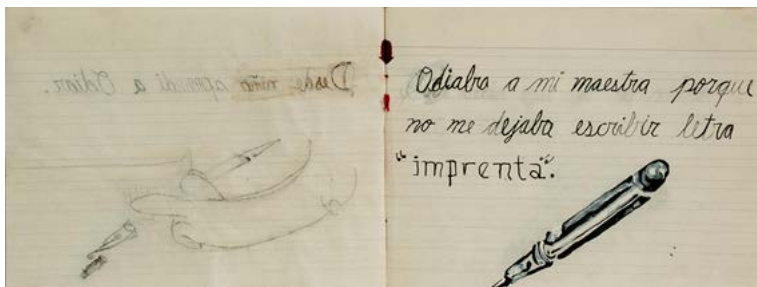 Desde niño aprendí a Odiar.
Odiaba a mi maestra porque
no me dejaba escribir letra
"imprenta".